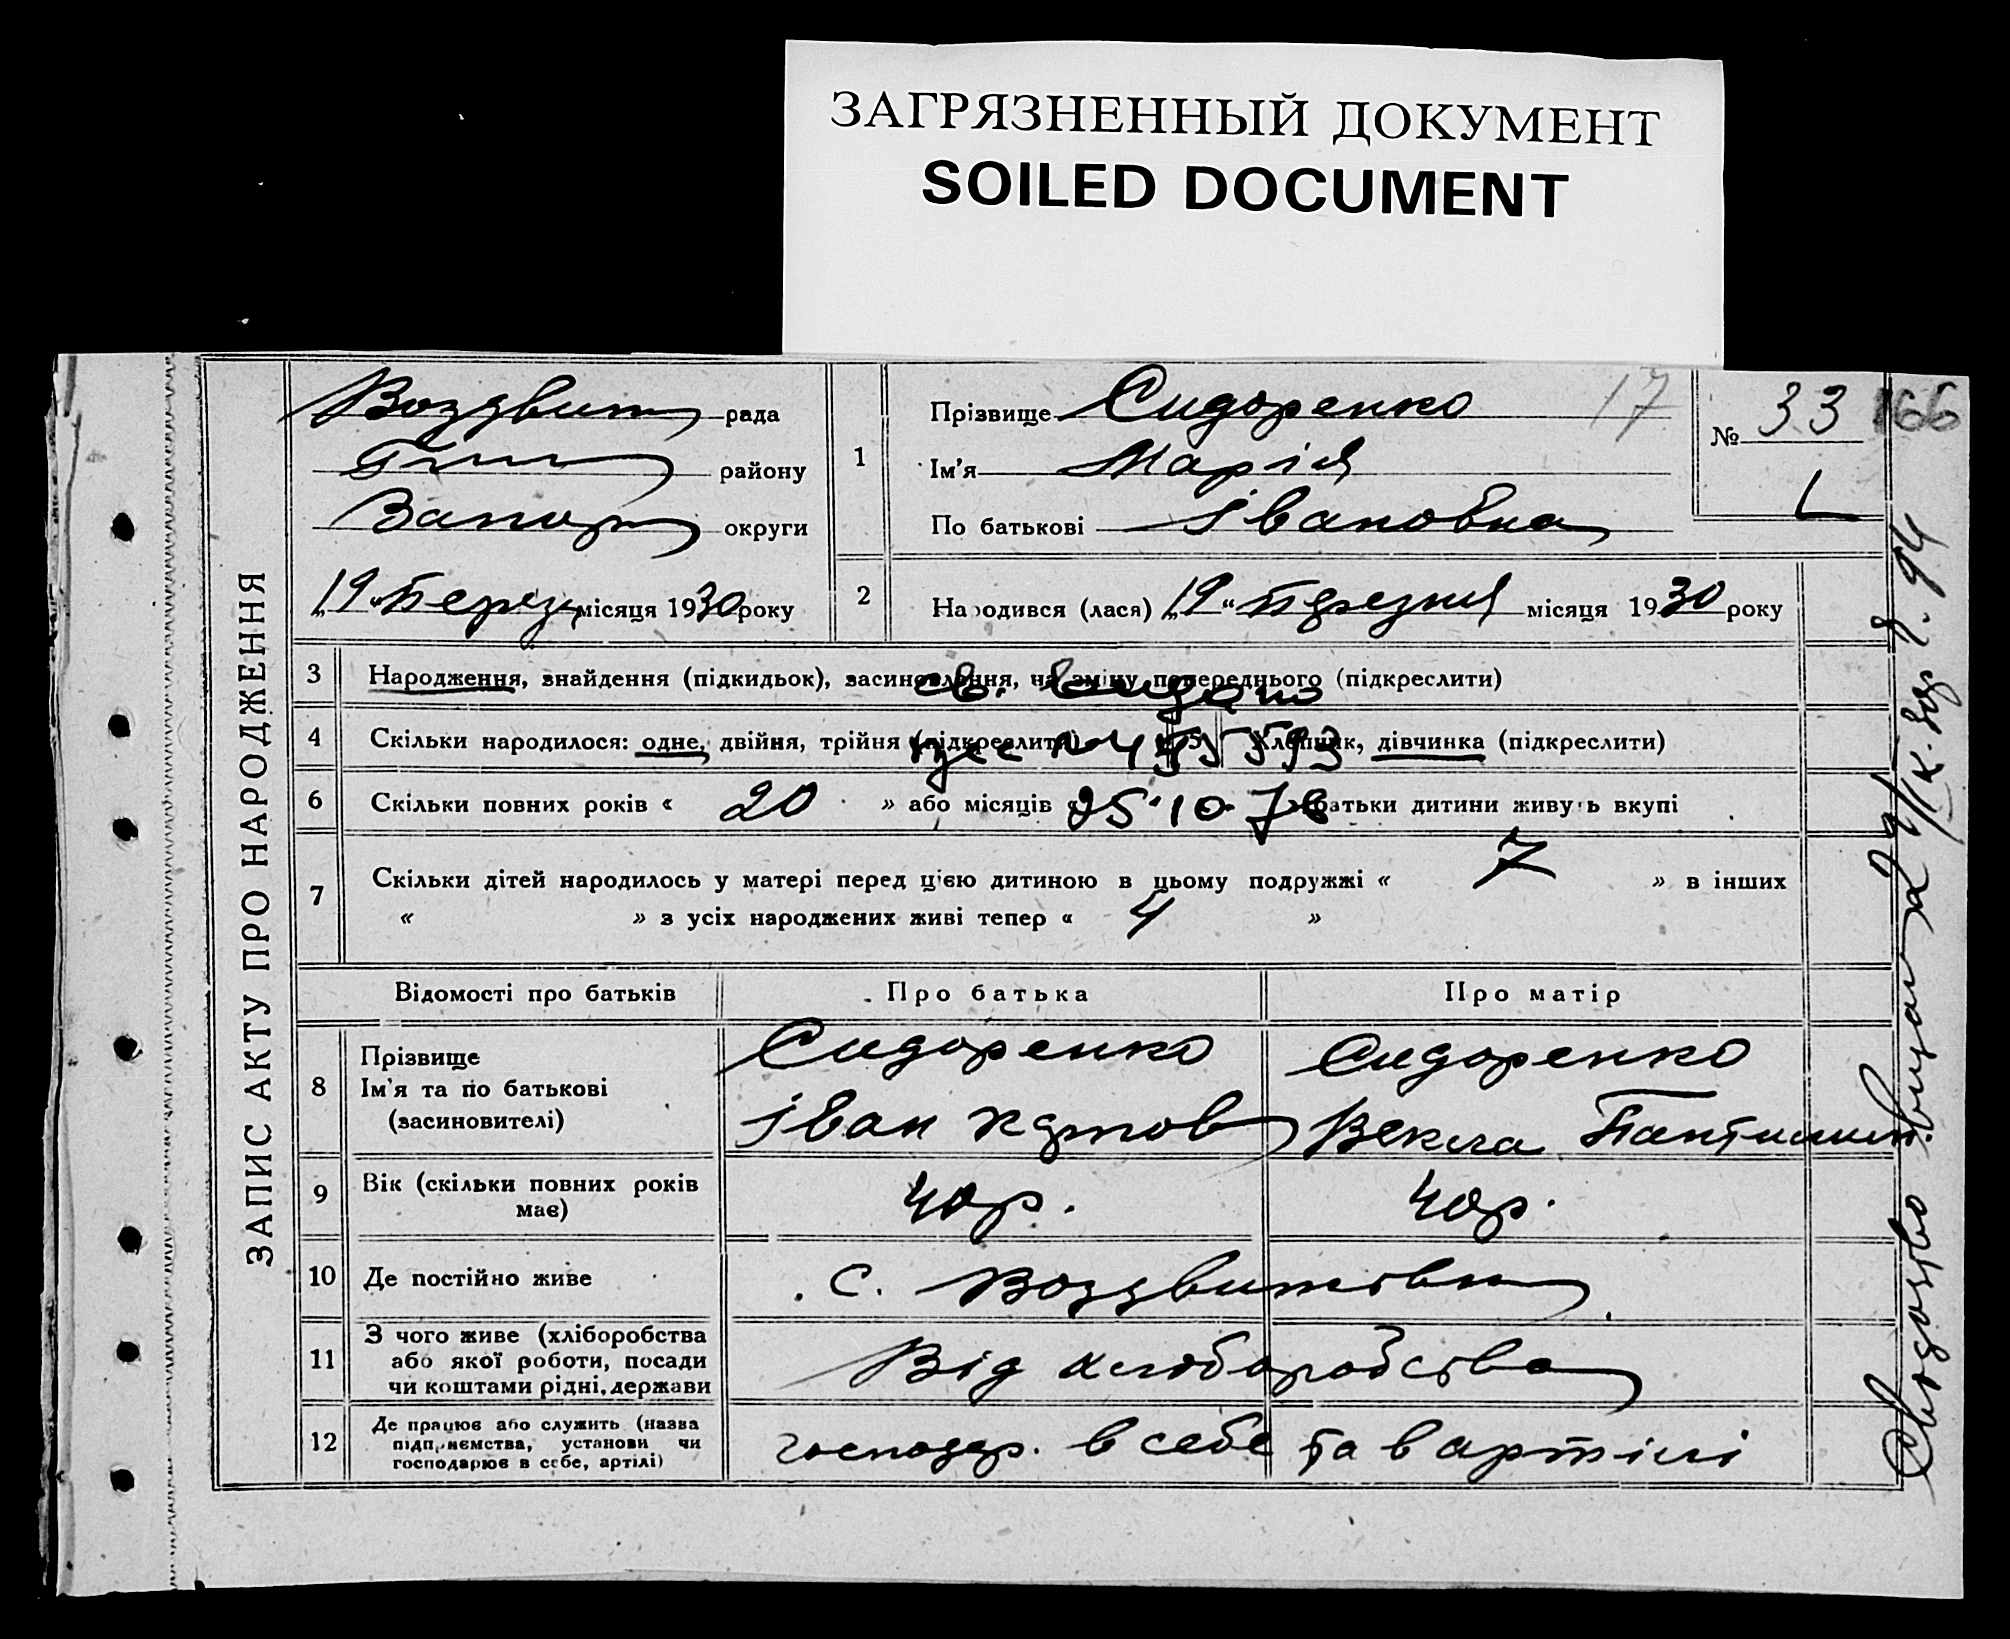 ЗАГРЯЗНЕННЫЙ ДОКУМЕНТ
SOILED DOCUMENT
ЗАПИС АКТУ ПРО НАРОДЖЕННЯ
рада
району
Запор округи
„19“ Березн місяця 1930 року
1
Прізвище Сидоренко 17
Ім'я Марія
По батькові Івановна
№ 33 166
2 Народився (лася) „19“ Березня місяця 1930 року
3 Народження, знайдення (підкидьок), засиновлення, на зміну попереднього (підкреслити)
св. видано
4 Скільки народилося: одне, двійня, трійня (підкреслити) 5 Хлопчик, дівчинка (підкреслити)
6 Скільки повних років « 20 » або місяців « » батьки дитини живуть вкупі
25.10.76
7 Скільки дітей народилось у матері перед цією дитиною в цьому подружжі « 7 » в інших
« » з усіх народжених живі тепер « 4 »
Відомості про батьків Про батька Про матір
8 Прізвище
Ім'я та по батькові
(засиновителі)
Сидоренко
Іван
Сидоренко
Векла
9 Вік (скільки повних років має) 40 р. 40 р.
10 Де постійно живе с. Воздвижівка
11 З чого живе (хліборобства
або якої роботи, посади
чи коштами рідні, держави
Від хліборобства
12 Де працює або служить (назва
підприємства, установи чи
господарює в себе, артілі)
господар. в себе та в артілі